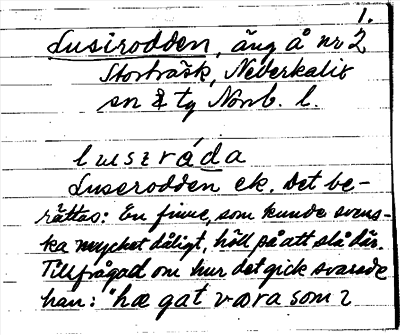 1.
Lusirodden, äng å nr 2
Storträsk, Nederkalix
sn & tg Norrb. l.
luserǻda
Luserodden ek. Det be-
rättas: En finne, som kunde svens-
ka mycket dåligt, höll på att slå där.
Tillfrågad om hur det gick svarade
han: "hæ gat væra som